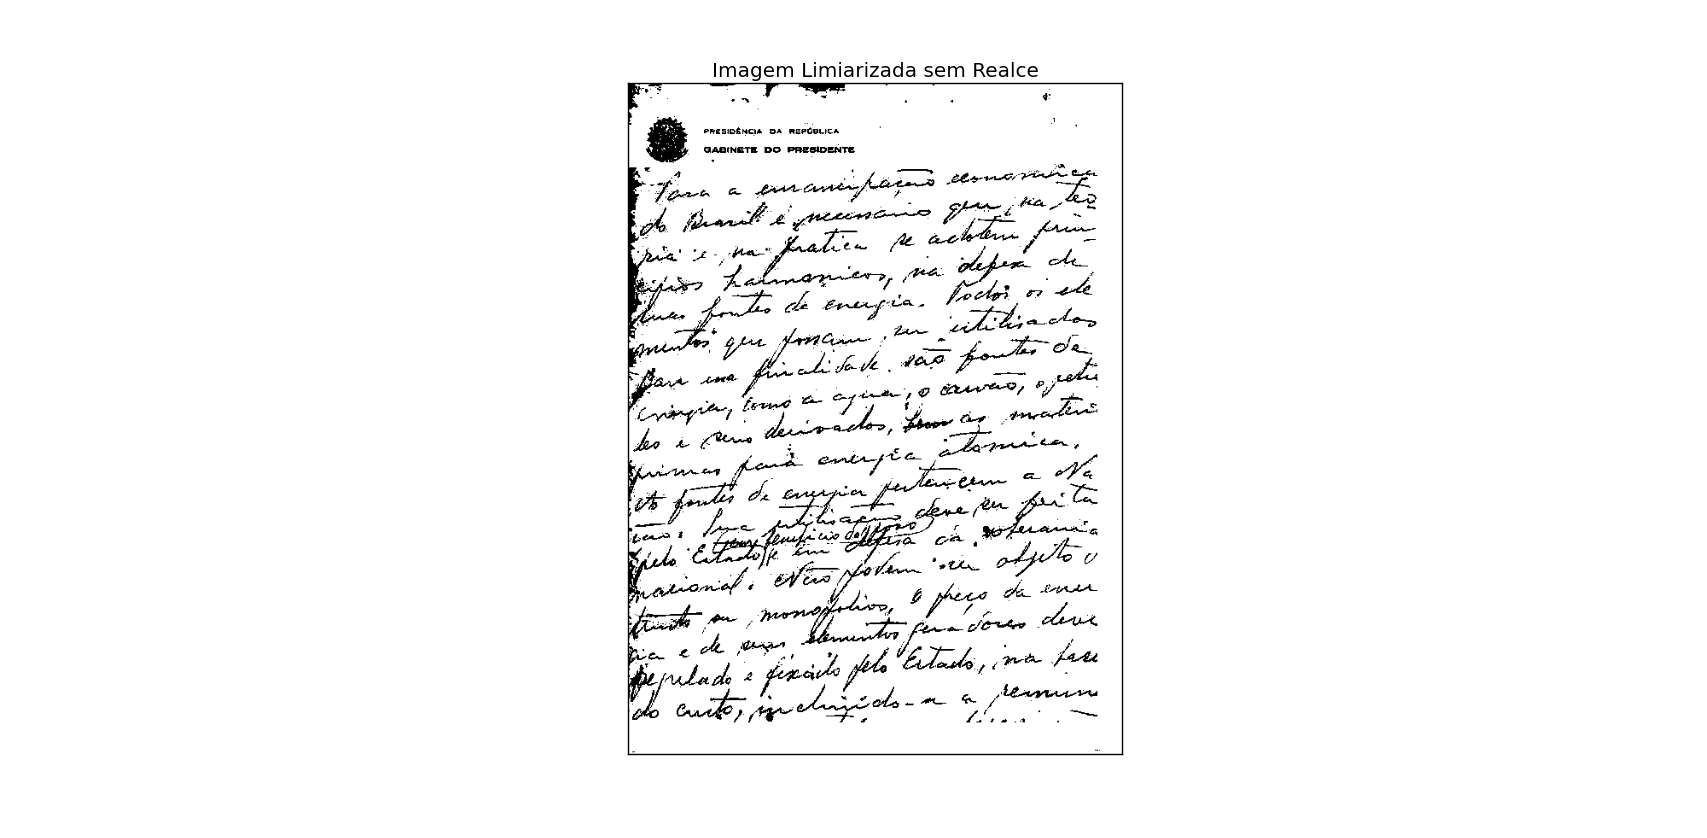 Imagem Limiarizada sem Realce
PRESIDÊNCIA DA REPÚBLICA
GABINETE DO PRESIDENTE
Para a emancipação economica
do Brasil é necessario que, na teo
ria e na pratica se adotem prin
cipios harmonicos, na defesa de
suas fontes de energia. Todos os ele
mentos que possam ser utilisados
para essa finalidade são fontes de
energia, como a agua, o carvão, o petro
leo e seus derivados, as materi
primas para energia atomica.
As fontes de energia pertencem a Na
ção. Sua utilisação deve ser feita
em beneficio do povo
pelo Estado e em defesa da soberania
nacional. Não podem ser objeto
trusts ou monopolios, o preço da ener
gia e de seus elementos geradores deve
regulado e fixado pelo Estado, na base
do custo, incluindo-se a remune